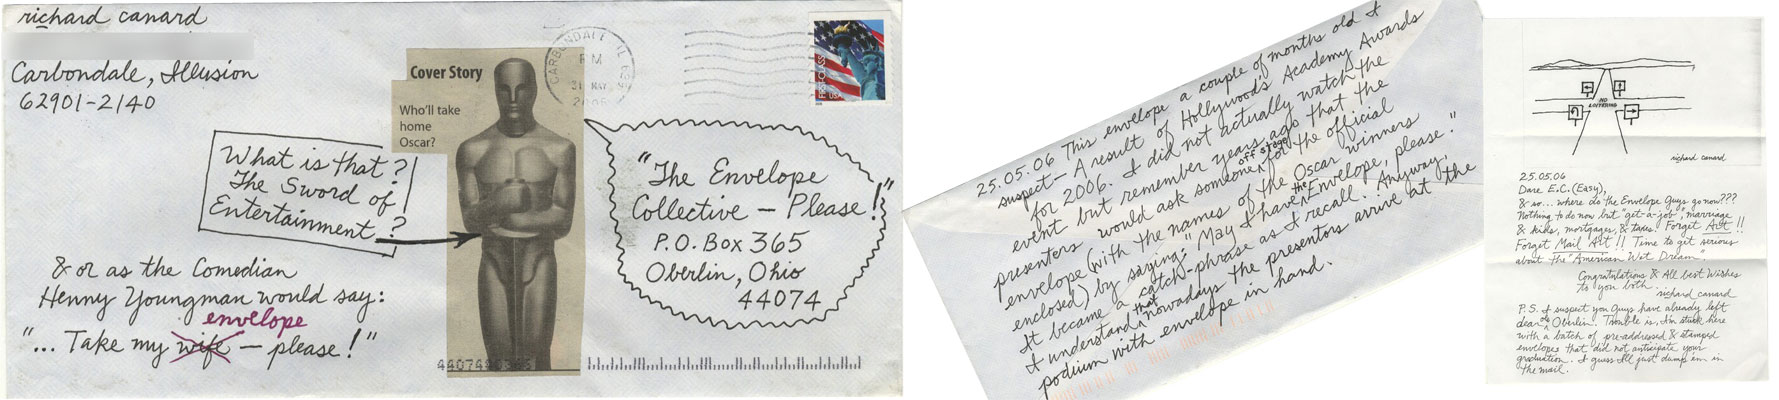 richard canard
Carbondale, Illusion
62901-2140
Cover Story
Who'll take
home
Oscar?
CARBONDALE IL
PM
31 MAY
2006
USA
What is that?
The Sword of
Entertainment?
"The Envelope
Collective — Please!"
P.O. Box 365
Oberlin, Ohio
44074
& or as the Comedian
Henny Youngman would say:
envelope
"... Take my wife — please!"
25.05.06 This envelope a couple of months old I
suspect — A result of Hollywood's Academy Awards
for 2006. I did not actually watch the
event but remember years ago that the
off stage
presentors would ask someone for the official
envelope (with the names of the Oscar winners
enclosed) by saying, "May I have the Envelope, please."
It became a catch-phrase as I recall. Anyway,
I understand that nowadays the presentors arrive at the
podium with envelope in hand.
NO
LOITERING
richard canard
25.05.06
Dare E.C. (Easy),
& so... where do the Envelope Guys go now???
Nothing to do now but "get-a-job", marriage
& kids, mortgages, & taxes. Forget Art!!
Forget Mail Art!! Time to get serious
about the "American Wet Dream".
Congratulations & All best Wishes
to you both
richard canard
P.S. I suspect you Guys have already left
dear ole Oberlin. Trouble is, I'm stuck here
with a batch of pre-addressed & stamped
envelopes that did not anticipate your
graduation. I guess I'll just dump 'em in
the mail.